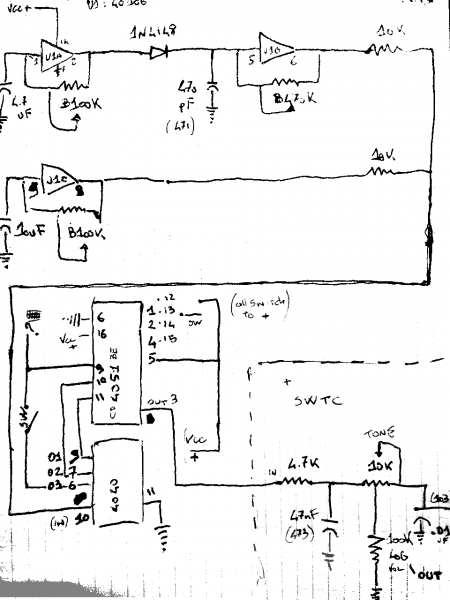 VCC+
U1: 40106
1N4148
14
U1A
1
2
7
B100K
4.7
uF
470
pF
(471)
5
U1B
6
B470K
10K
10K
9
U1C
8
10uF
B100K
?
SW
6
VCC
+
16
9
10
11
CD 4051 BE
1
.12
.13
2
.14
4
.15
5
SW
OUT 3
8
(all switch
to +
VCC
+
O1 9
O2 7
O3 6
(in) 10
4040
11
+
SWTC
TONE
IN
4.7K
10K
47nF
(473)
100K
LOG
VOL
(103)
.01
uF
OUT